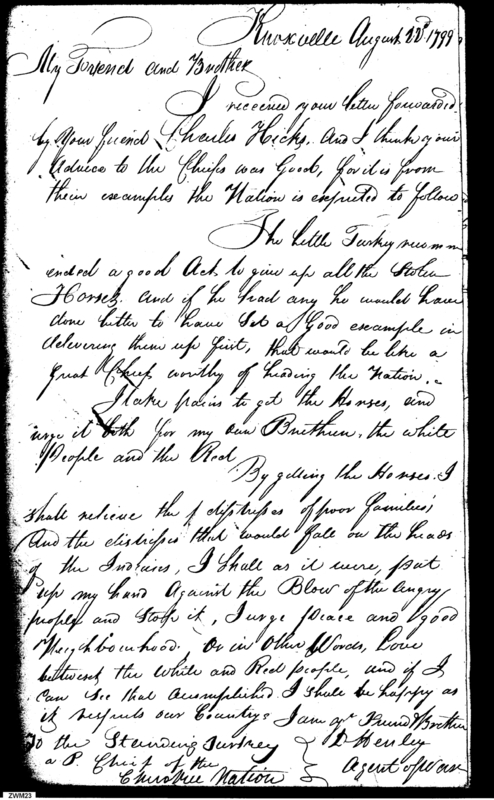 Knoxville August 22d 1799
My Friend and Brother
I received your letter forwarded
by your friend Charles Hicks, And I think your
Advice to the Chiefs was Good, for it is from
their examples the Nation is expected to follow
The Little Turkey recomm
ended a good Act to give up all the Stolen
Horses, and if he had any he would have
done better to have Set a Good example in
delivering them up first, that would be like a
Great Chief worthy of heading the Nation.
I take pains to get the Horses, and
urge it both for my own Brethren, the white
People and the Red
By getting the Horses. I
shall relieve the distresses of poor families;
And the distresses that would fall on the heads
of the Indians, I shall as it were, put
up my hand Against the Blow of the angry
people and Stop it, I urge peace and good
Neighbourhood, or in Other Words, Love
between the White and Red people, and if I
can See that Accomplished. I shall be happy as
it respects our Country. I am yr Friend & Brother
To the Standing Turkey } D Henley
a P. Chief of the } Agent of War
Cherokee Nation
ZWM23